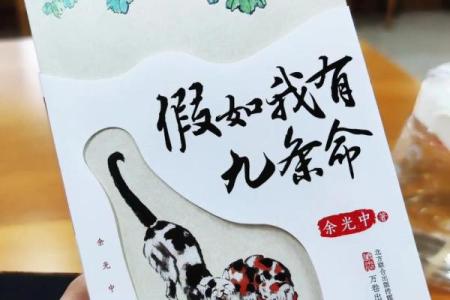 假如我有
九条命
余光中 著
北方联合出版传媒
万卷出
余光中